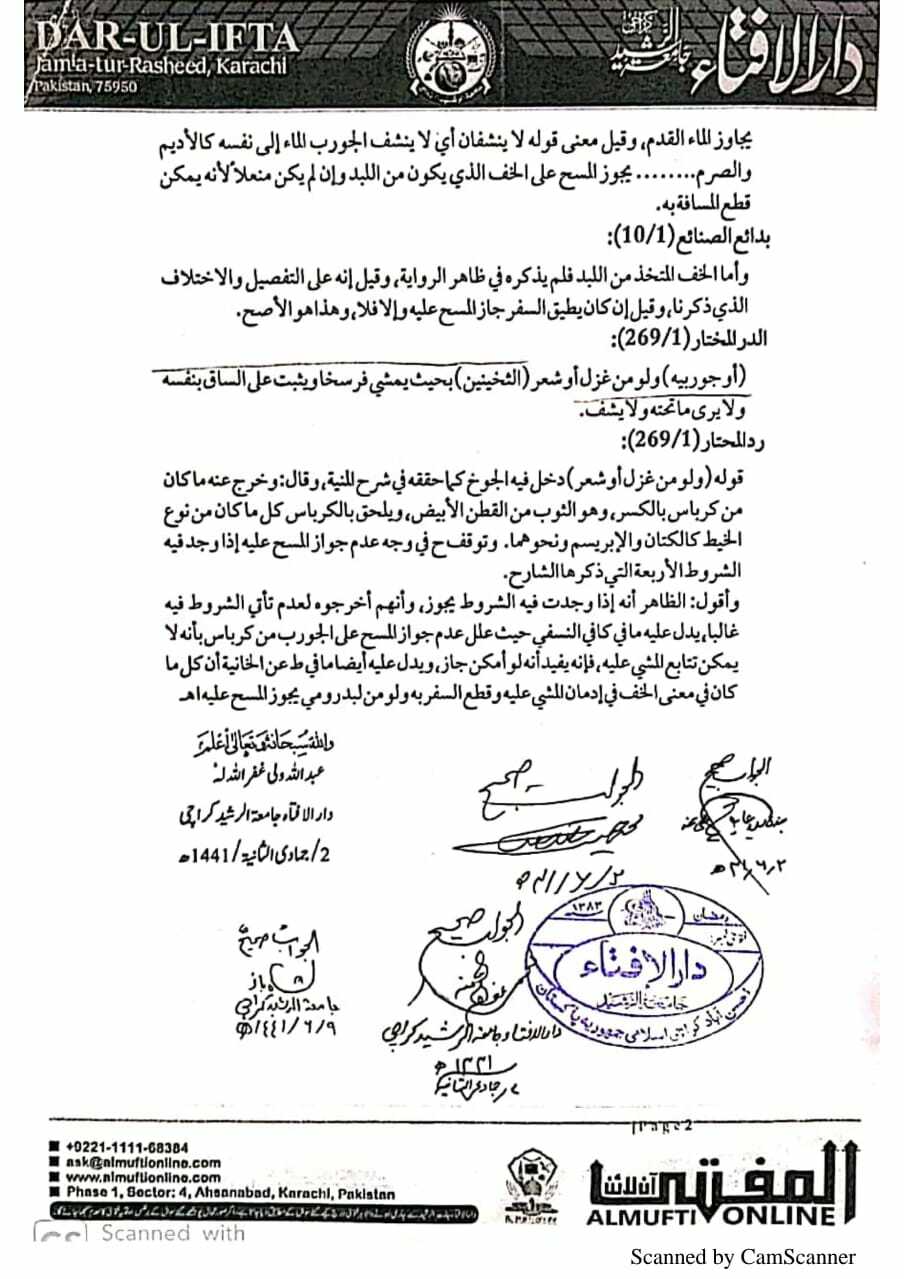 DAR-UL-IFTA
Jamia-tur-Rasheed, Karachi
Pakistan, 75950
دار الافتاء
جامعۃ الرشید کراچی
يجاوز الماء القدم، وقيل معنى قوله لا ينشفان أي لا ينشف الجورب الماء إلى نفسه كالأديم
والصرم........ يجوز المسح على الخف الذي يكون من اللبد وإن لم يكن منعلاً لأنه يمكن
قطع المسافة به.
بدائع الصنائع (10/1):
وأما الخف المتخذ من اللبد فلم يذكره في ظاهر الرواية، وقيل إنه على التفصيل والاختلاف
الذي ذكرنا، وقيل إن كان يطيق السفر جاز المسح عليه وإلا فلا، وهذا هو الأصح.
الدر المختار (269/1):
(أو جوربيه) ولو من غزل أو شعر (الثخينين) بحيث يمشي فرسخا ويثبت على الساق بنفسه
ولا يرى ما تحته ولا يشف.
رد المحتار (269/1):
قوله (ولو من غزل أو شعر) دخل فيه الجوخ كما حققه في شرح المنية، وقال: وخرج عنه ما كان
من كرباس بالكسر، وهو الثوب من القطن الأبيض، ويلحق بالكرباس كل ما كان من نوع
الخيط كالكتان والإبريسم ونحوهما. وتوقف ح في وجه عدم جواز المسح عليه إذا وجد فيه
الشروط الأربعة التي ذكرها الشارح.
وأقول: الظاهر أنه إذا وجدت فيه الشروط يجوز، وأنهم أخرجوه لعدم تأتي الشروط فيه
غالبا، يدل عليه ما في كافي النسفي حيث علل عدم جواز المسح على الجورب من كرباس بأنه لا
يمكن تتابع المشي عليه، فإنه يفيد أنه لو أمكن جاز، ويدل عليه أيضا ما في ط عن الخانية أن كل ما
كان في معنى الخف في إدمان المشي عليه وقطع السفر به ولو من لبد رومي يجوز المسح عليه اهـ
واللہ سبحانہ وتعالیٰ اعلم
عبد اللہ ولی غفر اللہ لہ
دار الافتاء جامعۃ الرشید کراچی
2/جمادی الثانیۃ/1441ھ
الجواب صحیح
الجواب صحیح
الجواب صحیح
دار الافتاء جامعۃ الرشید کراچی
الجواب صحیح
جامعۃ الرشید کراچی
۱۴۴۱/۶/۹ھ
۱۳۸۳
رمضان
فتویٰ نمبر:
دار الافتاء
جامعۃ الرشید
احسن آباد کراچی اسلامی جمہوریہ پاکستان
| P a g e 2
+0221-1111-68384
ask@almuftionline.com
www.almuftionline.com
Phase 1, Sector: 4, Ahsanabad, Karachi, Pakistan
المفتی آن لائن
ALMUFTI ONLINE
Scanned with
Scanned by CamScanner